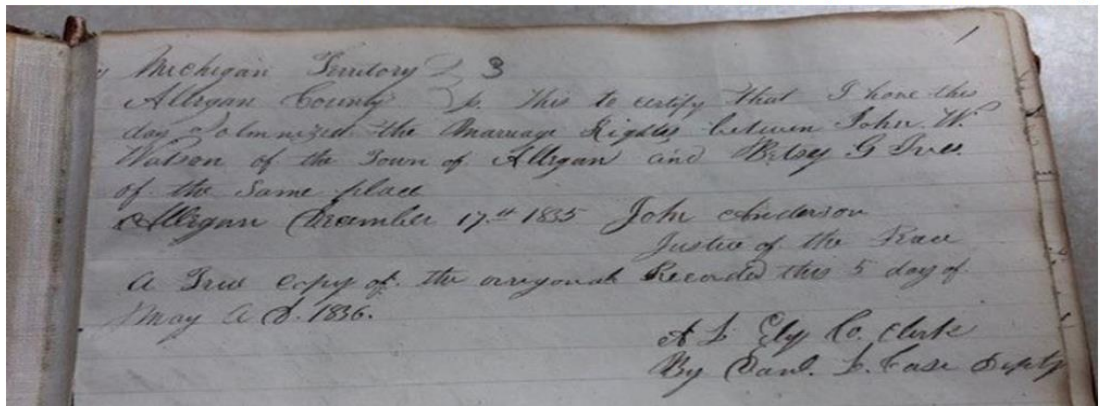 1
Michigan Territory } 3
Allegan County } ss. This to certify that I have this
day Solmnized the Marriage Rights between John W.
Watson of the Town of Allegan and Betsy G Ives
of the Same place
Allegan December 17.th 1835 John Anderson
Justice of the Peace
A True Copy of the orregonal Recorded this 5 day of
May A D. 1836.
A L Ely Co. Clerk
By Danl. L. Case Depty